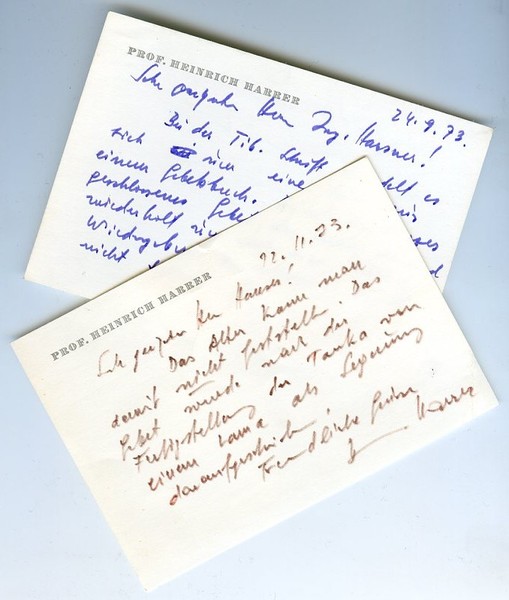 PROF. HEINRICH HARRER
24.9.73.
Sehr geehrter Herr Ing.
Bei der Tib. Schrift delt es
sich eine
einem Gebetsbuch.
geschlossenes Gebet
wiederholt
nicht
PROF. HEINRICH HARRER
22.11.73.
Sehr geehrter Herr
Das Alter kann man
damit nicht feststellen. Das
Gebet wurde nach der
Fertigstellung der Tanka von
einem Lama als Segnung
daraufgeschrieben.
Freundliche Grüsse
Harrer